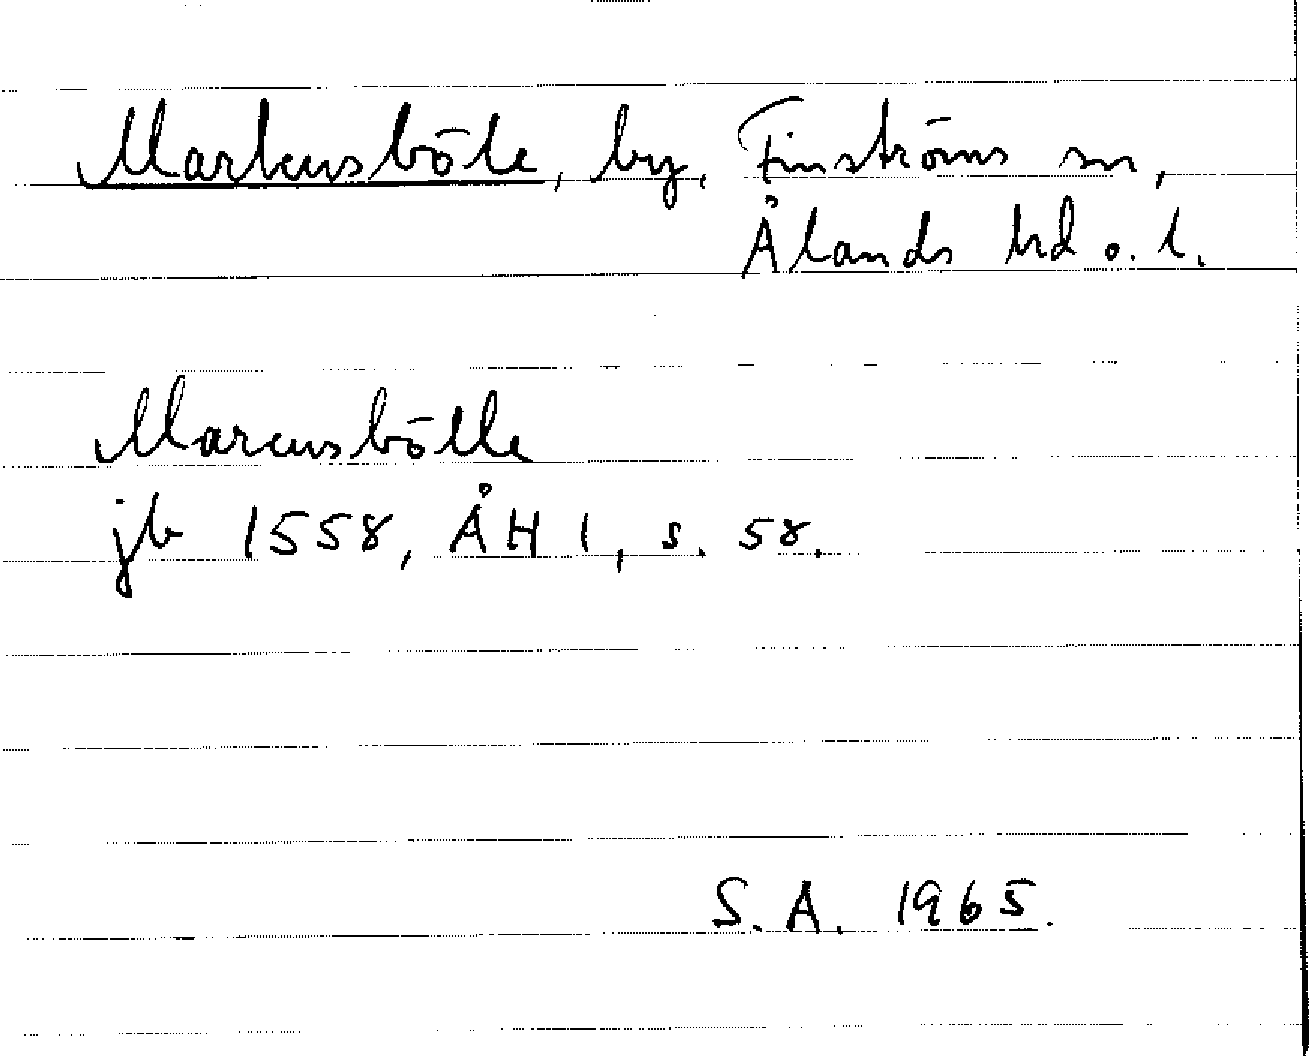 Markusböle, by, Finströms sn,
Ålands hd o. l.
Marcusbölle
jb 1558, ÅH 1, s. 58.
S. A. 1965.